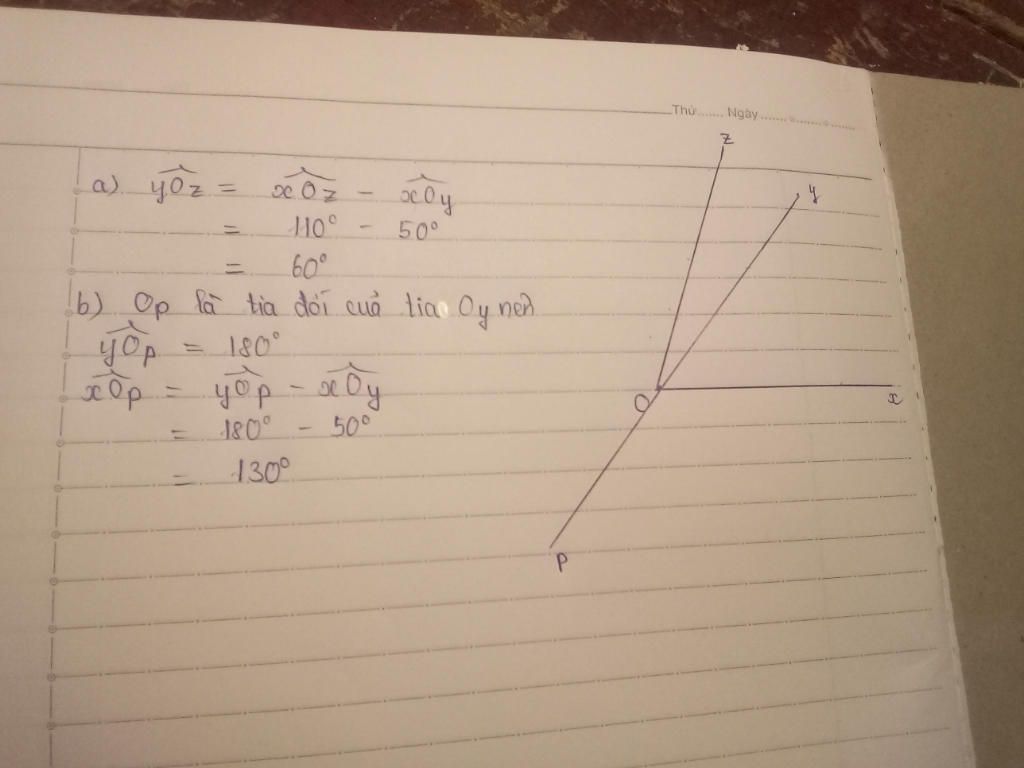 Thứ....... Ngày....................
a) yÔz = xÔz - xÔy
= 110° - 50°
= 60°
b) Op là tia đối cuả tia Oy nên
yÔp = 180°
xÔp = yÔp - xÔy
= 180° - 50°
= 130°
z
y
O
x
p